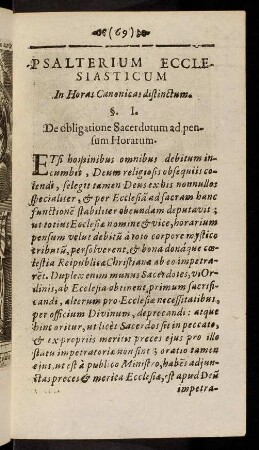 (69)
PSALTERIUM ECCLE-
SIASTICUM
In Horas Canonicas distinctum.
§. I.
De obligatione Sacerdotum ad pen-
sum Horarum.
ETsi hominibus omnibus debitum in-
cumbit, Deum religiosis obsequiis co-
lendi, selegit tamen Deus ex his nonnullos
specialiter, & per Ecclesiā ad sacram hanc
functionē stabiliter obeundam deputavit;
ut totius Ecclesiæ nomine & vice, horarium
pensum velut debitū à toto corpore mystico
tributū, persolverent, & bona donáque cœ-
lestia Reipublicæ Christianæ ab eo impetra-
rēt. Duplex enim munus Sacerdotes, vi Or-
dinis, ab Ecclesia obtinent, primum sacrifi-
candi, alterum pro Ecclesiæ necessitatibus,
per officium Divinum, deprecandi: atque
hinc oritur, ut licèt Sacerdos sit in peccato,
& ex propriis meritis preces ejus pro illo
statu impetratoriæ non sint; oratio tamen
ejus, ut est à publico Ministro, habēs adjun-
ctas preces & merita Ecclesiæ, est apud Deū
impetra-